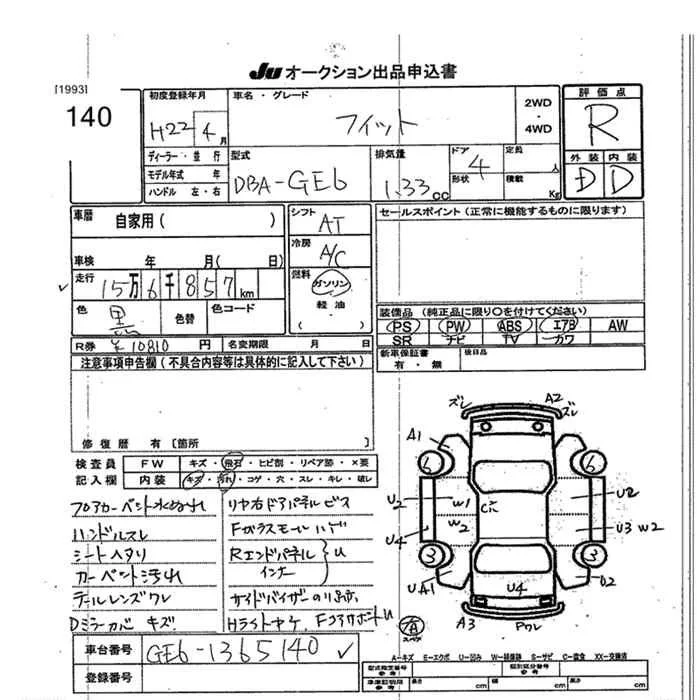 Ju オークション出品申込書
[1993]
140
初度登録年月
H22 4 月
車名・グレード
フィット
2WD
・
4WD
評価点
R
外装 内装
D D
ディーラー・並行
モデル年式 年
ハンドル 左・右
型式
DBA-GE6
排気量
1.33 cc
ドア
4
形状
定員
人
積載
Kg
車暦
自家用( )
車検 年 月( 日)
走行
15万6千857km
色
黒
色替
色コード
R券 ¥10810 円
名変期限 月 日
シフト
AT
冷房
A/C
燃料
ガソリン
・
軽油
( )
セールスポイント(正常に機能するものに限ります)
装備品 (純正品に限り○を付けてください)
PS PW ABS エアB AW
SR ナビ TV カワ
新車保証書
有・無
後日品
注意事項申告欄(不具合内容等は具体的に記入して下さい)
修復暦 有[箇所 ]
検査員
記入欄
FW キズ・飛石・ヒビ割・リペア跡・×要
内装 キズ・汚れ・コゲ・穴・スレ・キレ・破レ
フロアカーペント水ぬれ
ハンドルスレ
シートヘタリ
カーペント汚れ
テールレンズワレ
Dミラーカバーキズ
リヤ右ドアパネルビス
Fガラスモールハゲ
Rエンドパネル U
インナー
サイドバイザー
Hライトヤケ、FコアサポートU
ズレ A2 ズレ
A1
6 6
U2 W1 U2
W2
U4 U3 W2
3 3
UA1 U4 U2
A3 Pワレ
A
スペア
A…キズ E…エクボ U…凹み W…補修跡 S…サビ C…腐食 XX…交換済
車台番号
GE6-1365140
登録番号
型式指定番号
参考
類別区分番号
参考
車庫証明用
参考
長さ cm 幅 cm 高さ cm